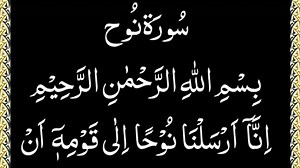 سُورَة نُوح
بِسْمِ اللهِ الرَّحْمٰنِ الرَّحِيْمِ
اِنَّاۤ اَرْسَلْنَا نُوْحًا اِلٰى قَوْمِهٖۤ اَنْ